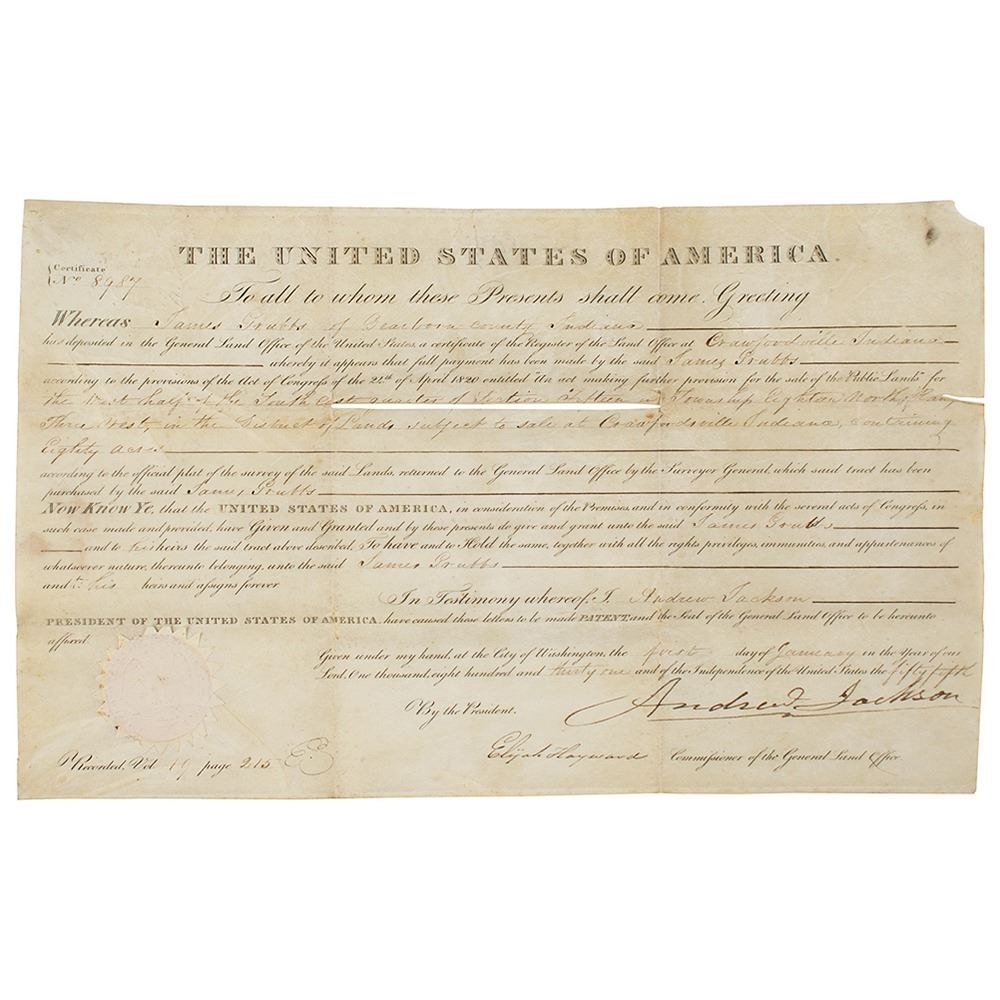 THE UNITED STATES OF AMERICA.
Certificate
No. 8987
To all to whom these Presents shall come, Greeting
Whereas James Grubbs of Dearborn County Indiana
has deposited in the General Land Office of the United States, a certificate of the Register of the Land Office at Crawfordsville Indiana
whereby it appears that full payment has been made by the said James Grubbs
according to the provisions of the Act of Congress of the 24th of April 1820 entitled "An act making further provision for the sale of the Public Lands" for
the West half of the South East quarter of Section fifteen in Township Eighteen North, of Range
Three West, in the District of Lands subject to sale at Crawfordsville Indiana, Containing
Eighty acres
according to the official plat of the survey of the said Lands, returned to the General Land Office by the Surveyor General, which said tract has been
purchased by the said James Grubbs
Now Know Ye, that the UNITED STATES OF AMERICA, in consideration of the Premises, and in conformity with the several acts of Congress, in
such case made and provided, have Given and Granted and by these presents do give and grant unto the said James Grubbs
and to his heirs the said tract above described; To have and to Hold the same, together with all the rights, privileges, immunities, and appurtenances of
whatsoever nature, thereunto belonging, unto the said James Grubbs
and to his heirs and assigns forever.
In Testimony whereof, I, Andrew Jackson
PRESIDENT OF THE UNITED STATES OF AMERICA, have caused these letters to be made PATENT, and the Seal of the General Land Office to be hereunto
affixed.
Given under my hand, at the City of Washington, the first day of January in the Year of our
Lord, One thousand, eight hundred and thirty one and of the Independence of the United States the fifty fifth
By the President. Andrew Jackson
Elijah Hayward Commissioner of the General Land Office.
Recorded, Vol 19 page 215